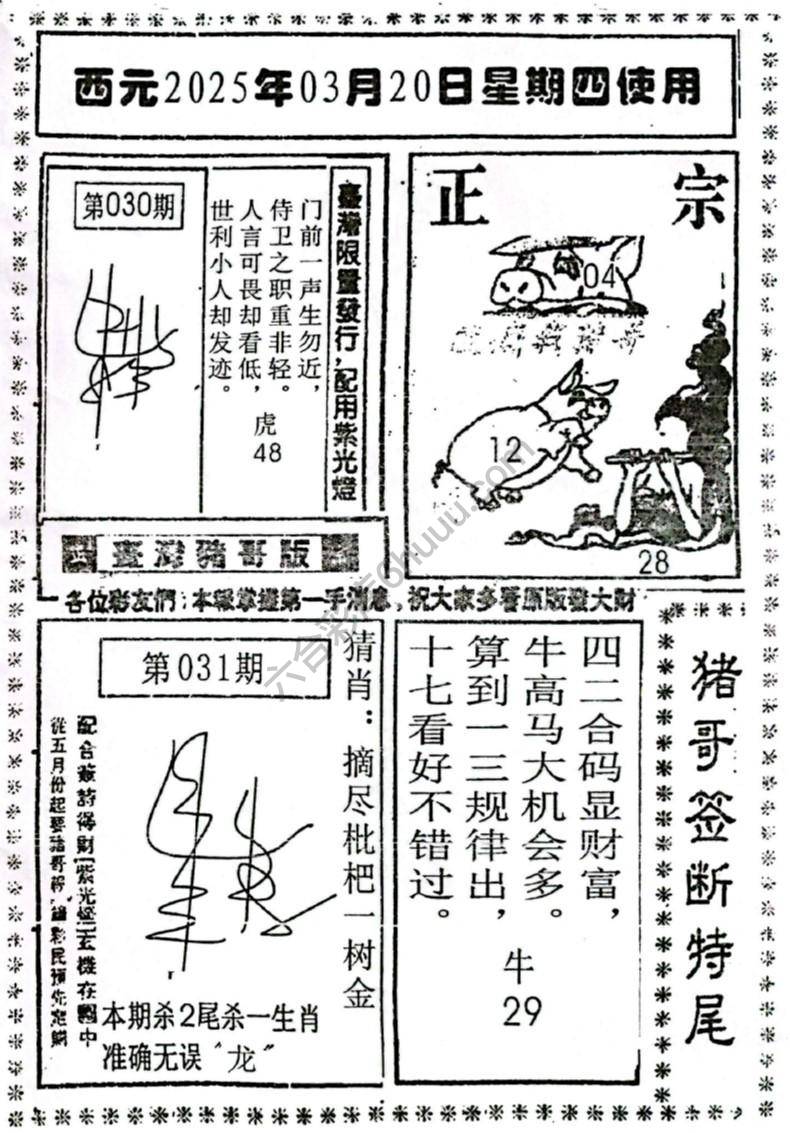 西元2025年03月20日星期四使用
第030期
门前一声生勿近，
侍卫之职重非轻。
人言可畏却看低，
世利小人却发迹。
虎
48
臺灣限量發行，配用紫光燈
正宗
04
12
28
臺灣豬哥版
各位彩友們：本報掌握第一手消息，祝大家多看原版發大財
第031期
猜肖：摘尽枇杷一树金
配合簽詩得財「紫光燈」玄機在圖中
本期杀2尾杀一生肖
准确无误“龙”
四二合码显财富，
牛高马大机会多。
算到一三规律出，
十七看好不错过。
牛
29
猪哥签断特尾
六合彩库6huuu.com